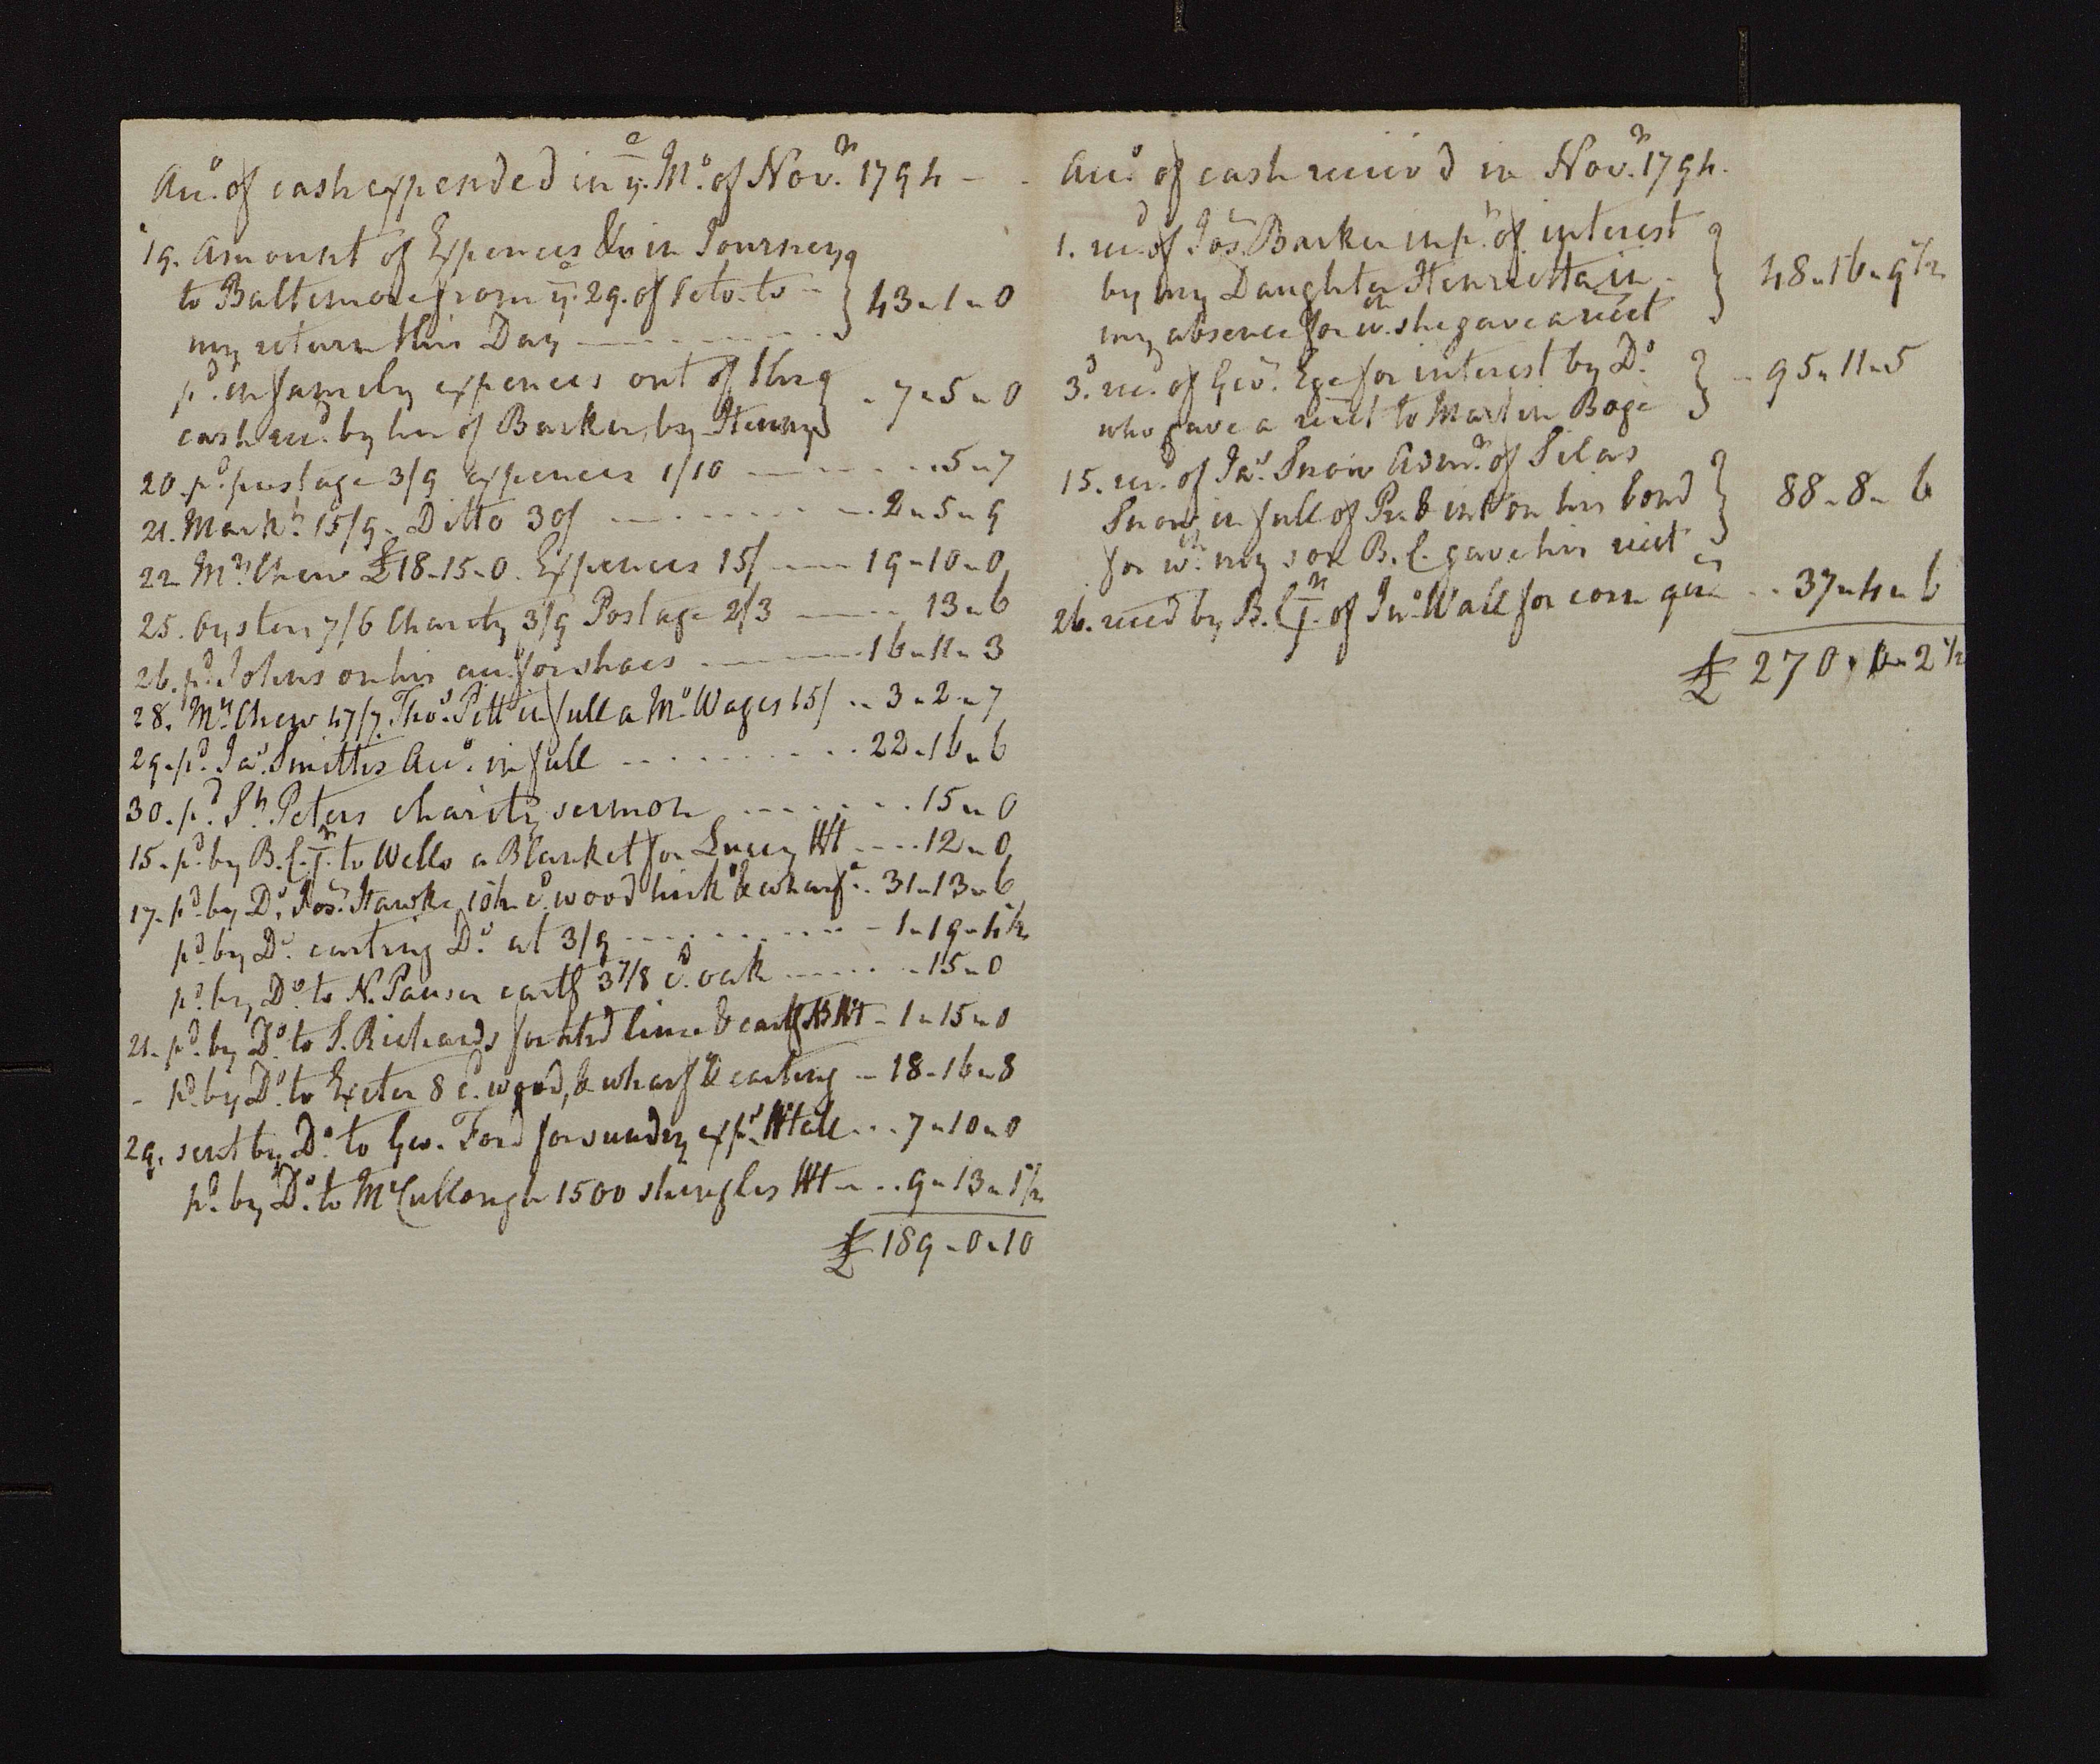 Acco. of cash expended in ye. Mo. of Novr. 1794 - -
19. Amount of Expences &c in Journey
to Baltimore from ye. 29. of Octo. to - } 43 „ 1 „ 0
my return this Day
pd. in family expences out of this
cash recd. by her of Barker, by Henny } - 7 „ 5 „ 0
20. pd. postage 3/9 expences 1/10 - - - - 5 „ 7
21. Markt. 15/9 - Ditto 30/ - - - - 2 „ 5 „ 9
22. Mrs. Chew £18-15-0. Expences 15/ - - 19-10-0
25. Oysters 7/6 Charity 3/9 Postage 2/3 - - 13 „ 6
26. pd. Johns on his acco. for shoes - - 16 „ 11 „ 3
28. Mrs. Chew 47/7. Thos. Pitt in full a Mo. Wages 15/ - - 3 „ 2 „ 7
29. pd. Jas. Smiths Acco. in full - - - - 22 „ 16 „ 6
30. pd. St. Peters charity sermon - - - - 15 „ 0
15. pd. by B.C. Jr. to Wells a Blanket for Lucey Wt - - - - 12 „ 0
17. pd. by Do. Jos. Hawke 10½ cd. wood hick & wharfe - - 31 „ 13 „ 6
pd. by Do. carting Do. at 3/9 - - - - 1 „ 19 „ 4½
pd. by Do. to N. Pauser cartg 3 7/8 cd. oak - - - - 15 „ 0
21. pd. by Do. to S. Richards for lime & cartg Wt - 1 „ 15 „ 0
- pd. by Do. to Exeter 8 c. wood, & wharf & carting - 18 „ 16 „ 8
29. sent by Do. to Geo. Ford for sundry exps. Whall - - - 7 „ 10 „ 0
pd. by Do. to McCullough 1500 shingles Wt - - - 9 „ 13 „ 1½
£ 189 „ 0 „ 10
Acco. of cash receiv'd in Novr. 1794.
1. recd. of Jos. Barker in pt. of interest
by my Daughter Henrietta in } 48 „ 16 „ 9½
my absence for wh. she gave a receit
3. recd. of Geo. Ege for interest by Do.
who gave a receit to Martin Boge } - 95 „ 11 „ 5
15. recd. of Jas. Snow Admr. of Silas
Snow, in full of Pr. & int on his bond } 88 „ 8 „ 6
for wh. my son B.C. gave his receit
26. recd by B.C. Jr. of Jno. Wall for corn - - 37 „ 4 „ 6
£ 270 „ 0 „ 2½